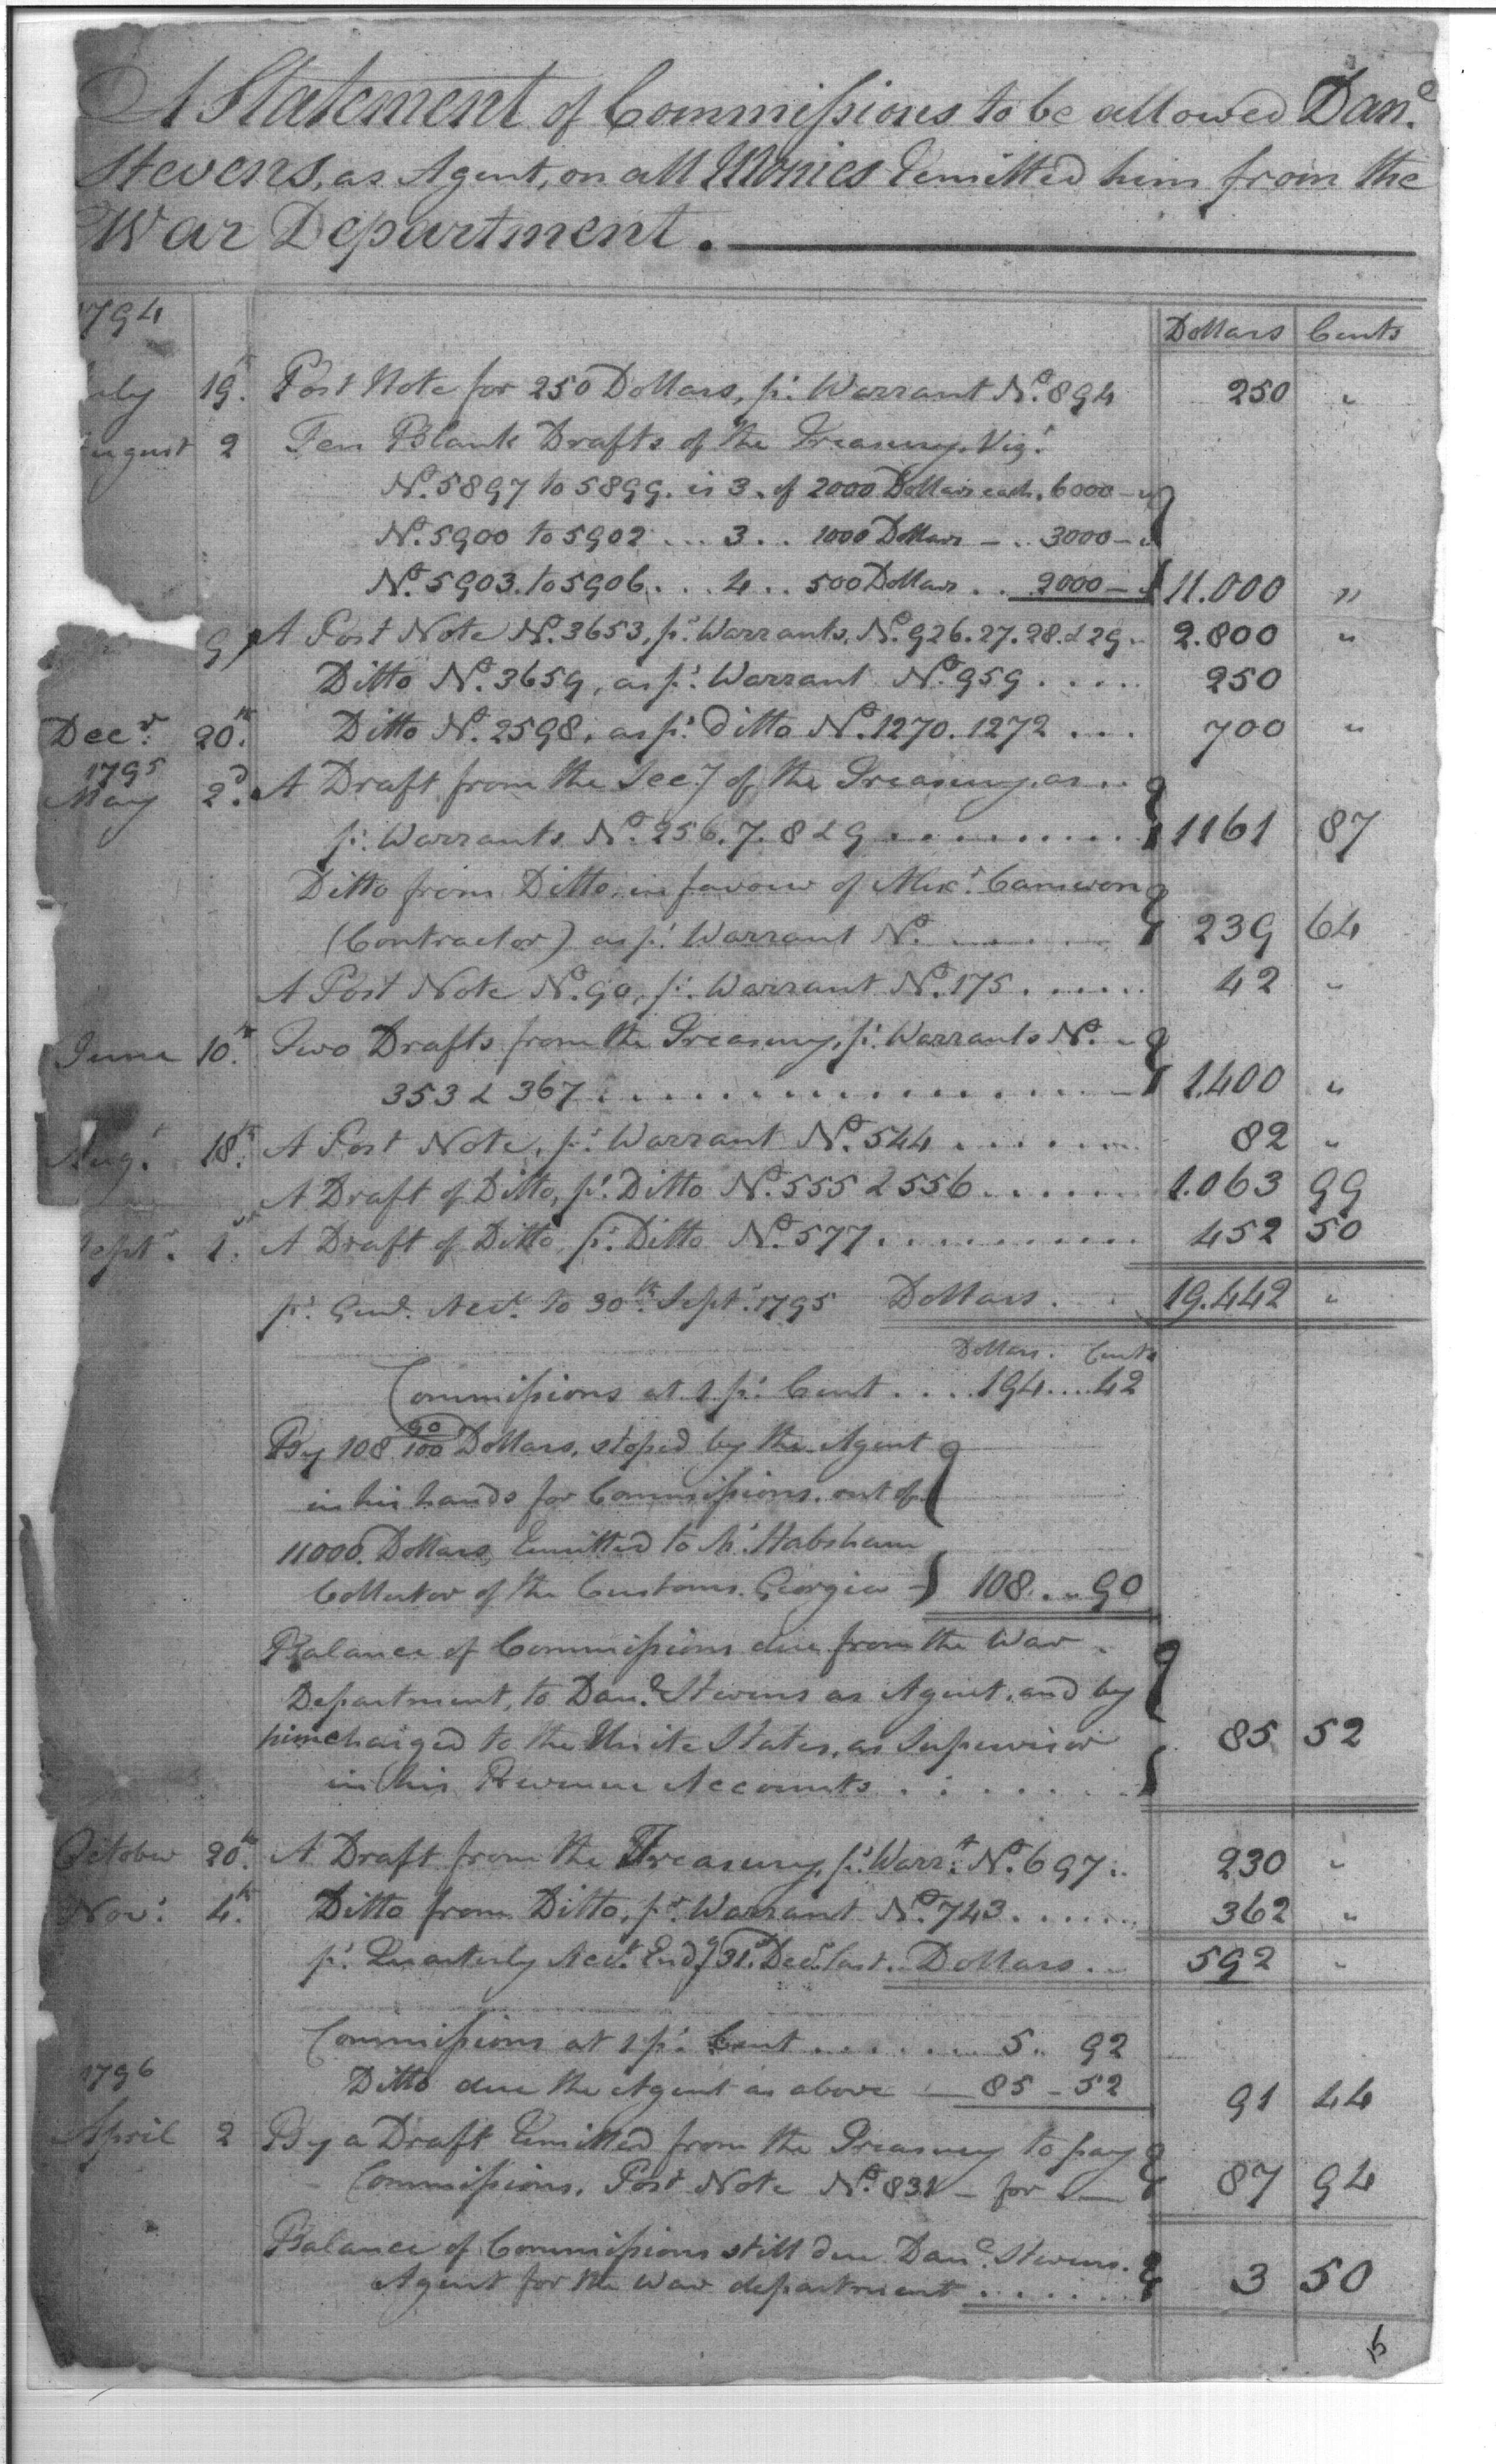 A Statement of Commissions to be allowed Danl.
Stevens, as Agent, on all Monies Remitted him from the
War Department.
1794
Dollars Cents
uly 19th. Post Note for 250 Dollars, pr. Warrant No. 894 250 "
ugust 2 Ten Blank Drafts of the Treasury, Viz:
No. 5897 to 5899. is 3. of 2000 Dollars each. 6000 - "
No. 5900 to 5902 ... 3 .. 1000 Dollars - .. 3000 - "
No. 5903. to 5906 ... 4 .. 500 Dollars .. 2000 - " 11.000 "
9 A Post Note No. 3653, pr. Warrants, No. 926.27.28.& 29. 2.800 "
Ditto No. 3659, as pr. Warrant No. 959 .... 250
Decr. 20th. Ditto No. 2598, as pr. ditto No. 1270.1272 ... 700 "
1795
May 2d. A Draft from the Secy of the Treasury, as ..
pr. Warrants No. 256.7.8 & 9 ......... 1161 87
Ditto from Ditto, in favour of Alexr. Cameron
(Contractor) as pr. Warrant No. ...... 239 64
A Post Note No. 90, pr. Warrant No. 175 ...... 42 "
June 10th. Two Drafts from the Treasury, pr. Warrants No.
353 & 367 ................ 1.400 "
Augt. 18th. A Post Note, pr. Warrant No. 544 ...... 82 "
A Draft of Ditto, pr. Ditto No. 555 & 556 ...... 1.063 99
Septr. 1. A Draft of Ditto, pr. Ditto No. 577 ......... 452 50
pr. Genl. Acct. to 30th. Septr. 1795 Dollars ... 19.442 "
Dollars. Cents
Commissions at 1 pr. Cent .... 194 .... 42
By 108 90/100 Dollars, stoped by the Agent
in his hands for Commissions, out of
11000 Dollars, Remitted to Mr. Habsham
Collector of the Customs. Georgia - 108 .. 90
Balance of Commissions due from the War
Department, to Danl. Stevens as Agent, and by
him charged to the Unite States, as Supervisor
in his Revenue Accounts ...... 85 52
October 20th. A Draft from the Treasury, pr. Warrt. No. 697 .. 230 "
Novr. 4th. Ditto from Ditto, pr. Warrant No. 743 ...... 362 "
pr. Quarterly Acct. Endg 31st. Decr. last .. Dollars .. 592 "
Commissions at 1 pr. Cent ........ 5 .. 92
1796
Ditto due the Agent as above - 85 - 52 91 44
April 2 By a Draft Remitted from the Treasury to pay
Commissions. Post Note No. 831 - for - 87 94
Balance of Commissions still due Danl. Stevens.
Agent for the War department ...... 3 50